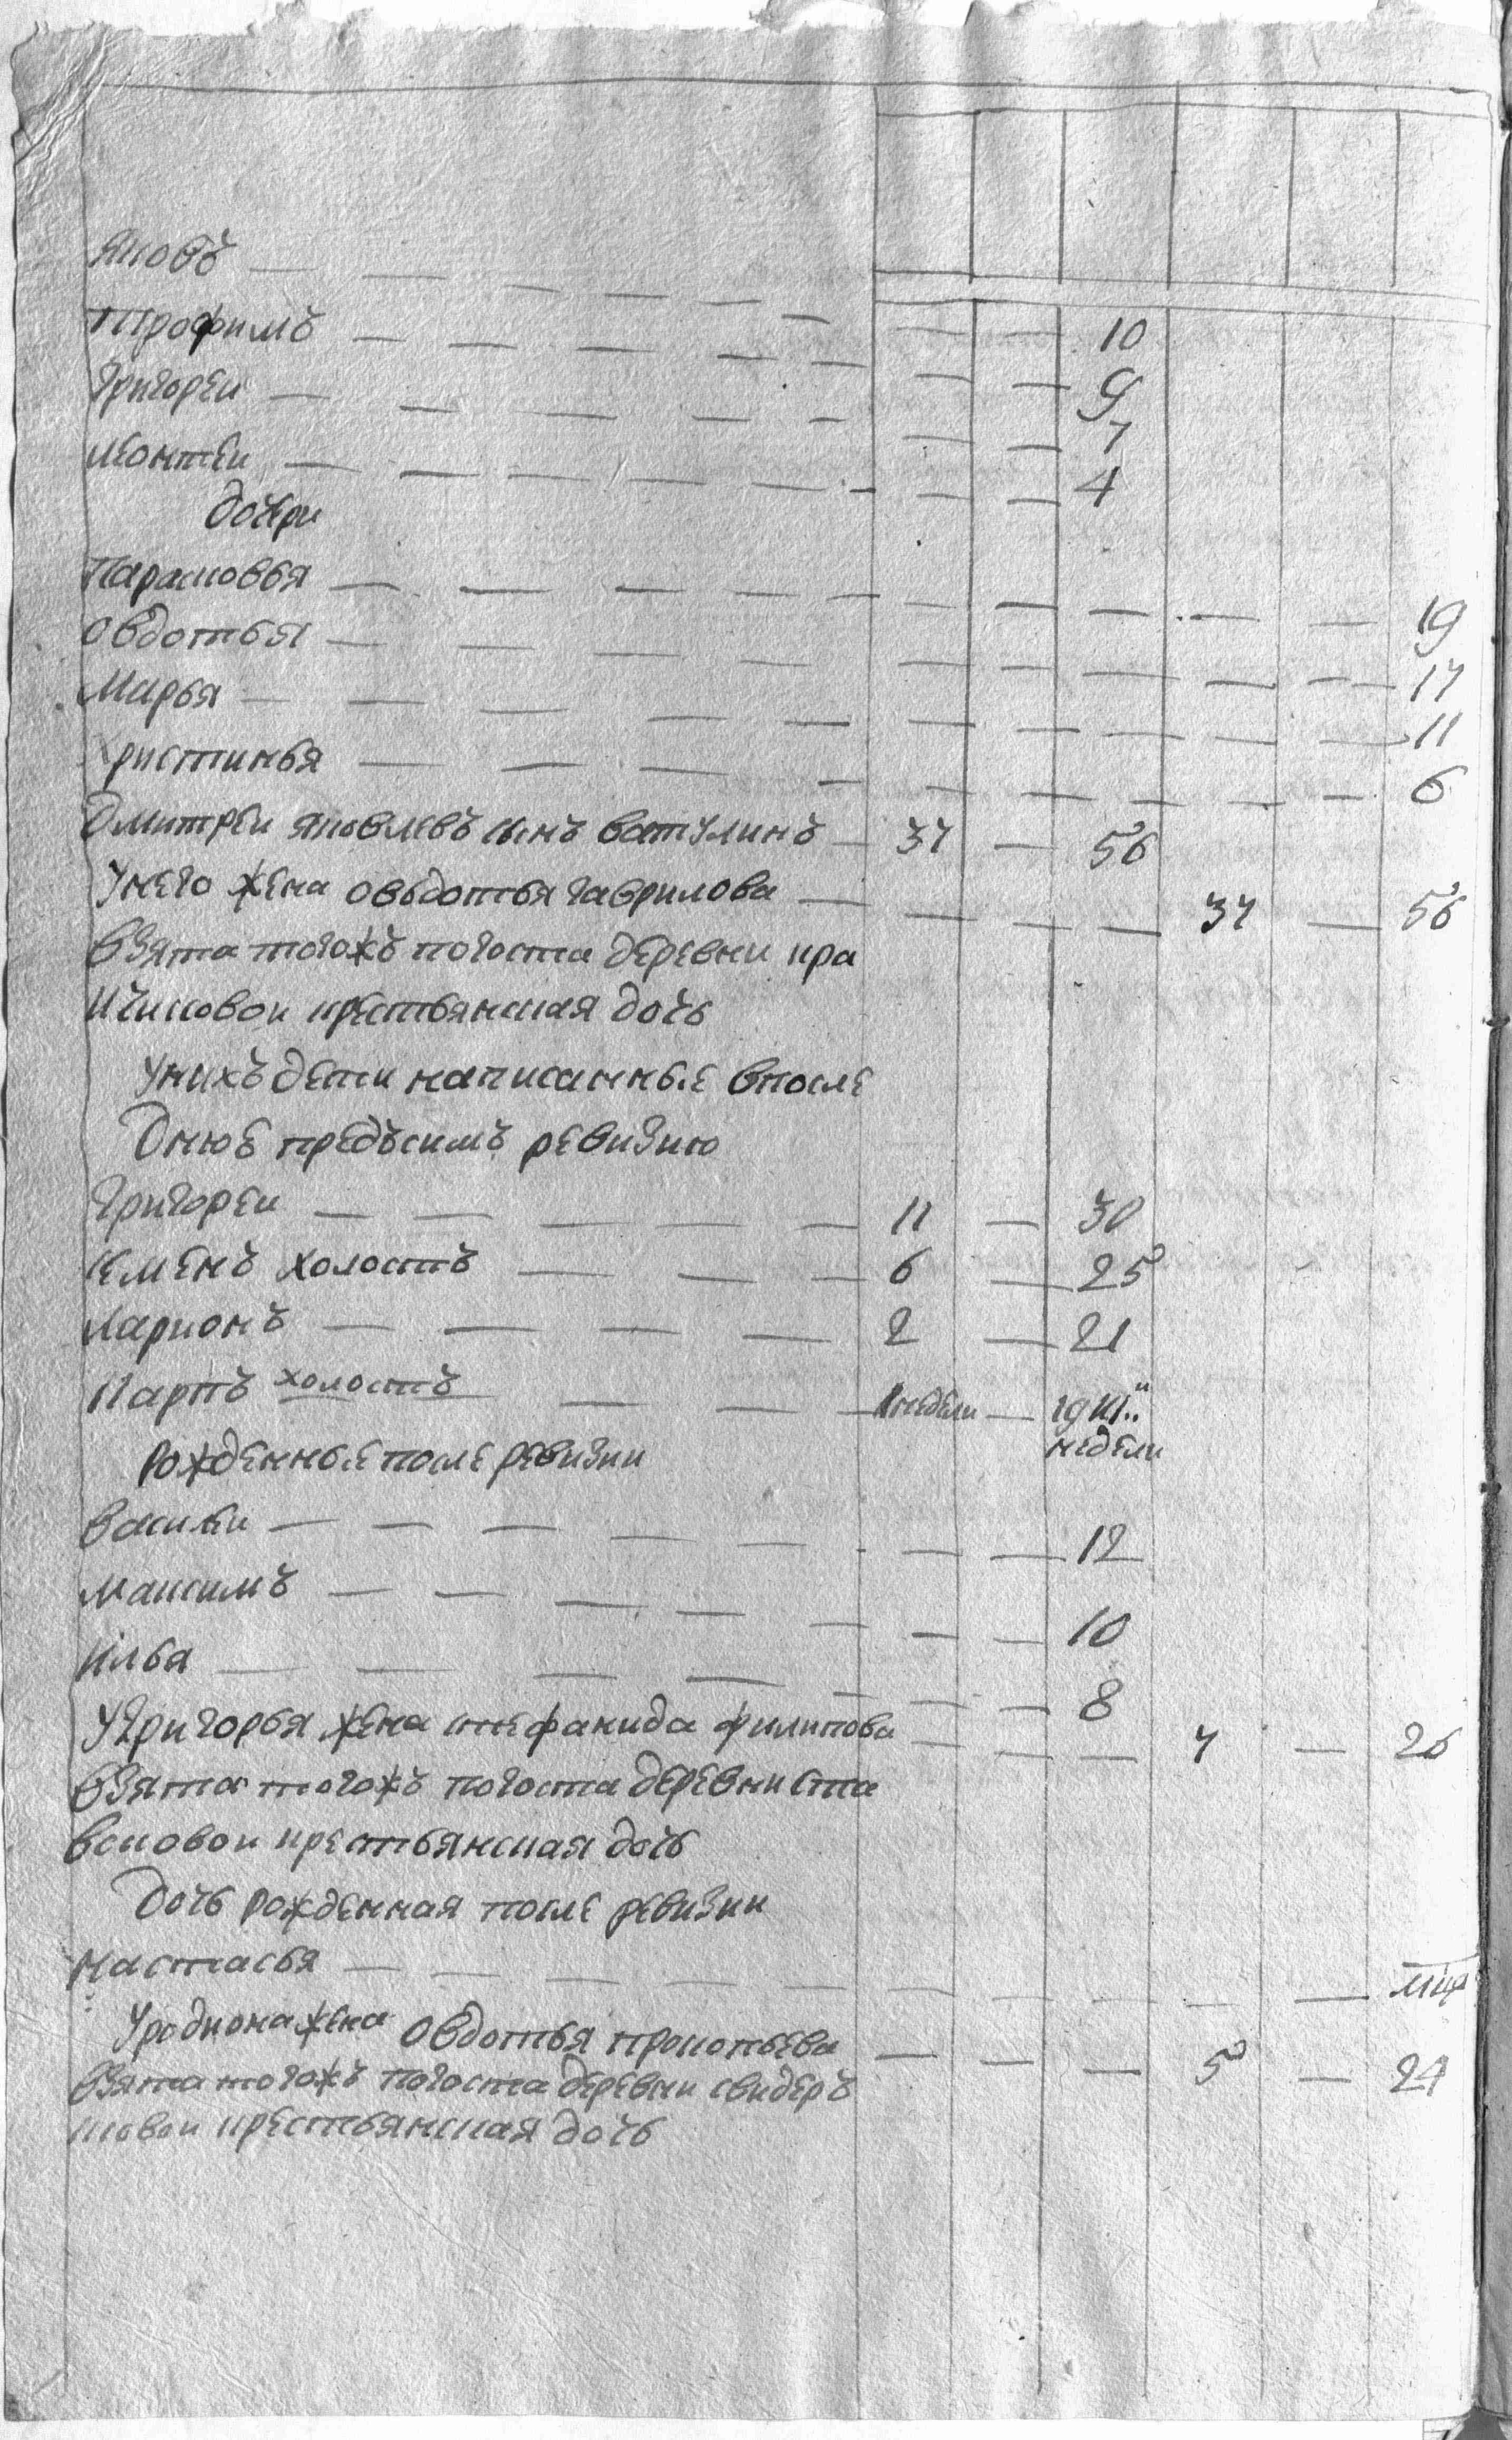 Яковъ — — — — — — — — 10
Трофимъ — — — — — — — 9
Григореи — — — — — — — 7
Леонтеи — — — — — — — 4
дочери
Парасковья — — — — — — — — — 19
Овдотья — — — — — — — — — 17
Марья — — — — — — — — — — 11
Христинья — — — — — — — — — 6
Дмитреи яковлевъ сынъ ватулинъ — 37 — 56
У него жена овъдотья гаврилова — — — — 37 — 56
взята тогожъ погоста деревни кра
ичиковои крестьянская дочь
у нихъ дети написанные впосле
днюю предъсимъ ревизию
Григореи — — — — — 11 — 30
Семенъ холостъ — — — 6 — 25
Ларионъ — — — — 2 — 21
Карпъ холостъ — — — недели — 19 Ш недели
рожденные после ревизии
Василеи — — — — — — — — 12
Максимъ — — — — — — — 10
Илья — — — — — — — 8
У Григорья жена стефанида филипова — — — 7 — 26
взята тогожъ погоста деревни ста
вковои крестьянская дочь
Дочь рожденная после ревизии
настасья — — — — — — — — — — мца
У родиона жена овдотья прокопьева — — — 5 — 24
взята тогожъ погоста деревни свидеръ
ковои крестьянская дочь